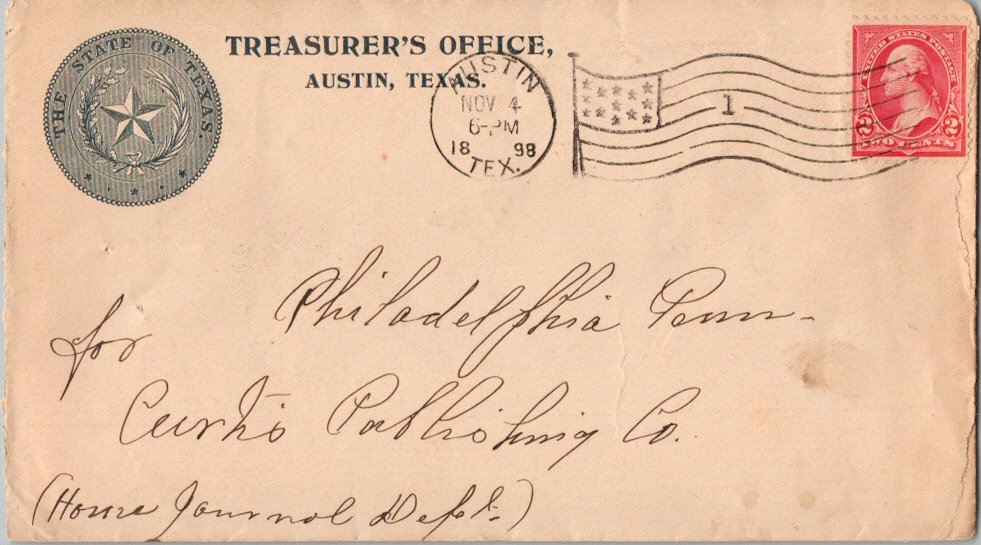 THE STATE OF TEXAS
TREASURER'S OFFICE,
AUSTIN, TEXAS.
AUSTIN
NOV 4
6-PM
18 98
TEX.
1
UNITED STATES POSTAGE
2 2
TWO CENTS
Philadelphia Penn-
for
Curtis Publishing Co.
(Home Journal Dept.)